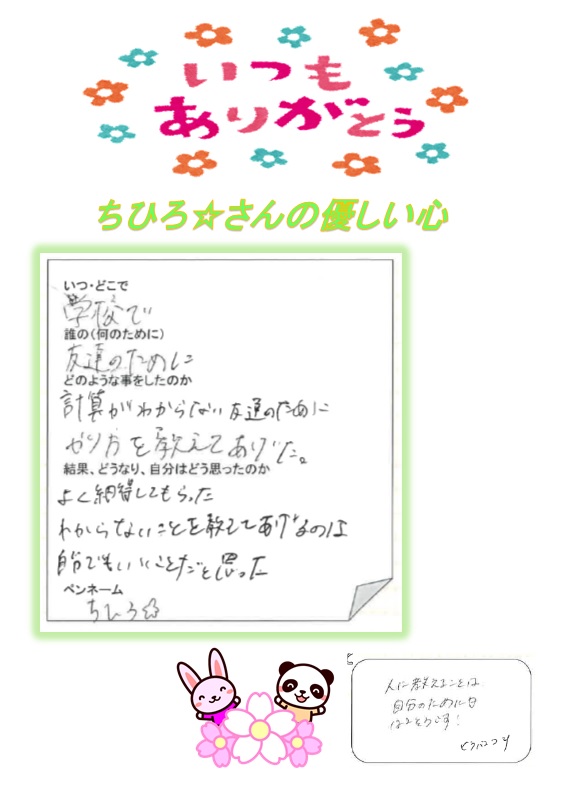 いつも
ありがとう
ちひろ☆さんの優しい心
いつ・どこで
学校で
誰の(何のために)
友達のために
どのような事をしたのか
計算がわからない友達のために
やり方を教えてあげた。
結果、どうなり、自分はどう思ったのか
よく納得してもらった
わからないことを教えてあげるのは
自分でもいいことだと思った
ペンネーム
ちひろ☆
人に教えることは
自分のために